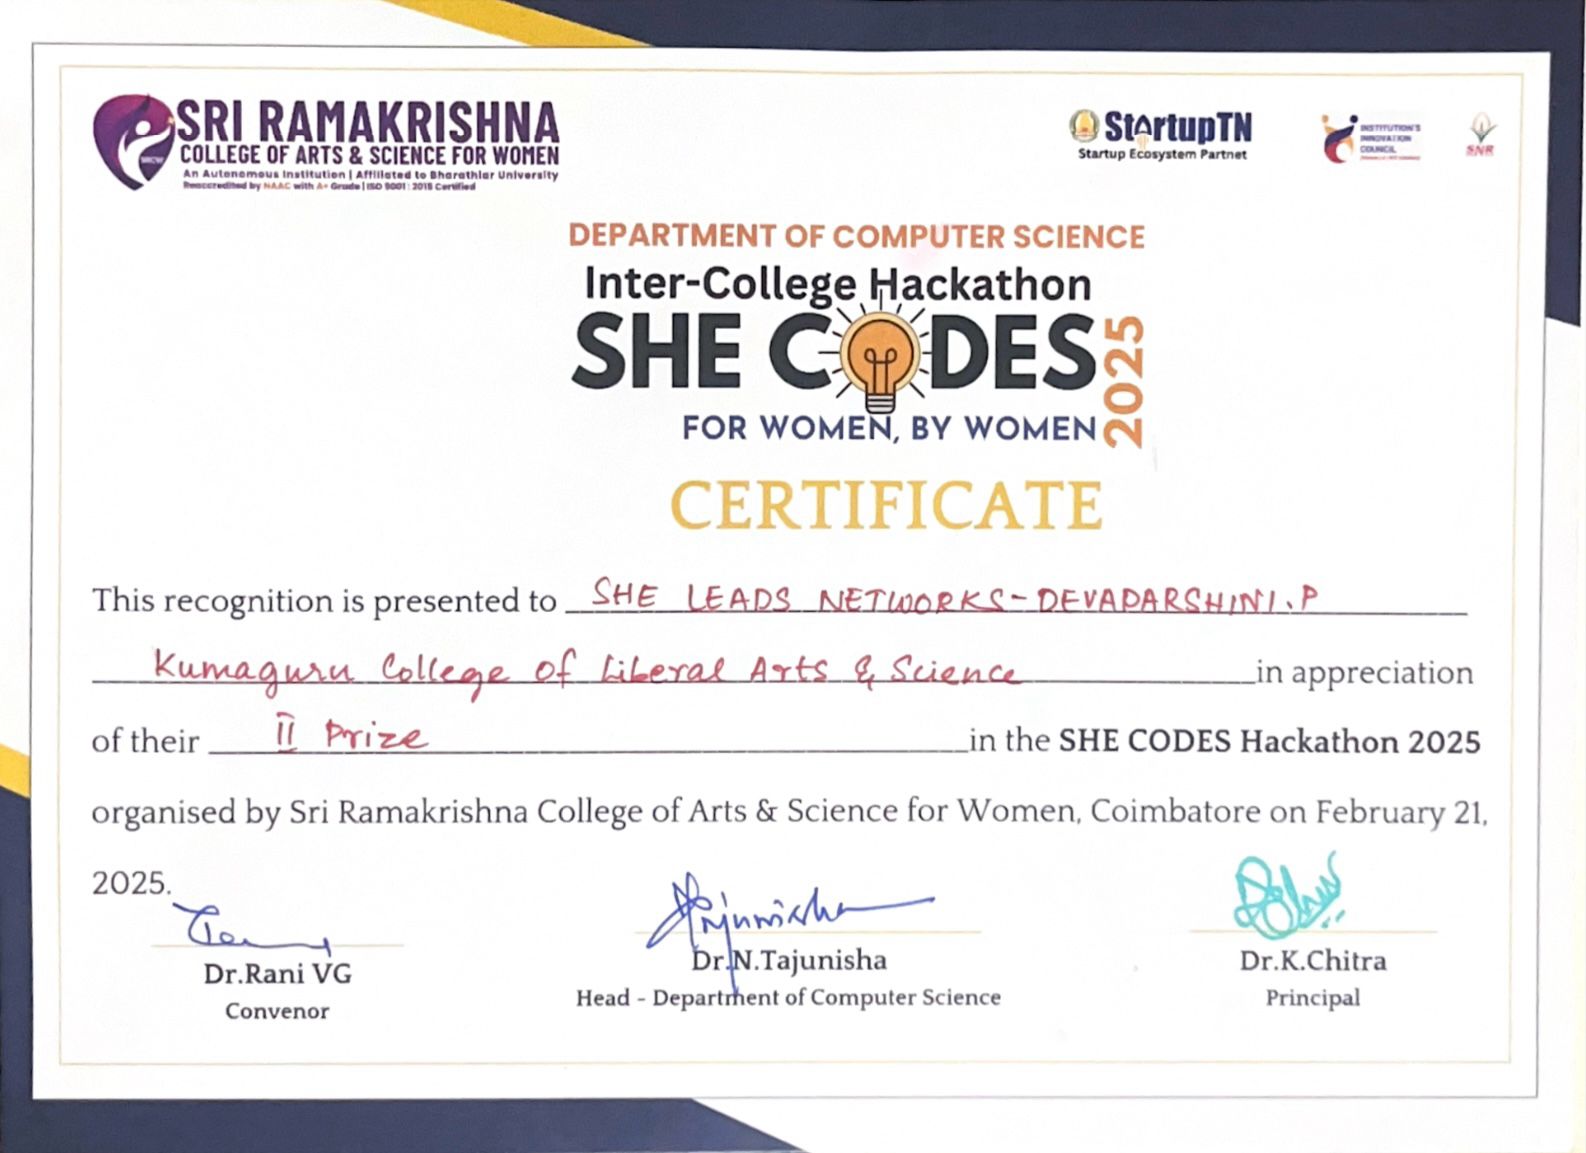 SRI RAMAKRISHNA
COLLEGE OF ARTS & SCIENCE FOR WOMEN
An Autonomous Institution | Affiliated to Bharathiar University
Reaccredited by NAAC with A+ Grade | ISO 9001 : 2015 Certified
SRCW
StartupTN
Startup Ecosystem Partnet
INSTITUTION'S
INNOVATION
COUNCIL
SNR
DEPARTMENT OF COMPUTER SCIENCE
Inter-College Hackathon
SHE CODES 2025
FOR WOMEN, BY WOMEN
CERTIFICATE
This recognition is presented to SHE LEADS NETWORKS - DEVADARSHINI.P
Kumaguru College of Liberal Arts & Science in appreciation
of their II Prize in the SHE CODES Hackathon 2025
organised by Sri Ramakrishna College of Arts & Science for Women, Coimbatore on February 21,
2025.
Dr.Rani VG
Convenor
Dr.N.Tajunisha
Head - Department of Computer Science
Dr.K.Chitra
Principal